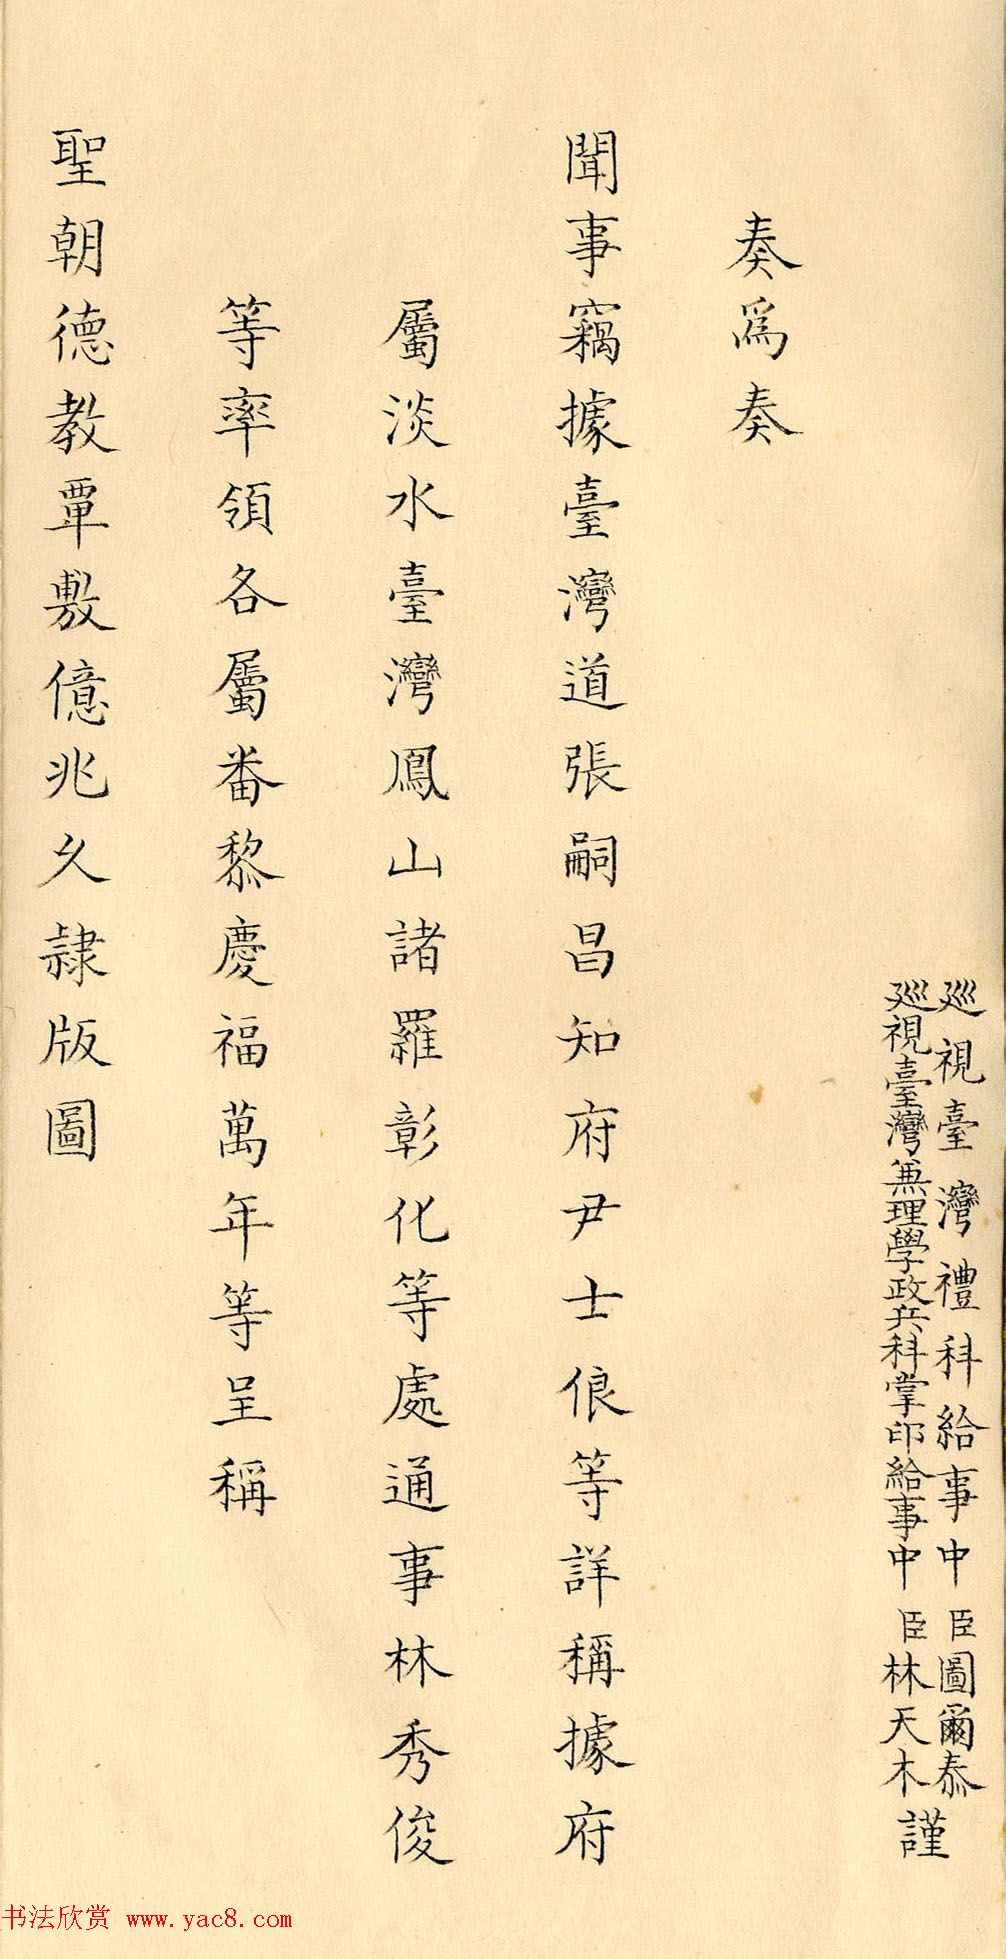 巡視臺灣禮科給事中臣圖爾泰
巡視臺灣兼理學政兵科掌印給事中臣林天木
謹
奏爲奏
聞事竊據臺灣道張嗣昌知府尹士俍等詳稱據府
屬淡水臺灣鳳山諸羅彰化等處通事林秀俊
等率領各屬番黎慶福萬年等呈稱
聖朝德教覃敷億兆久隸版圖
书法欣赏 www.yac8.com